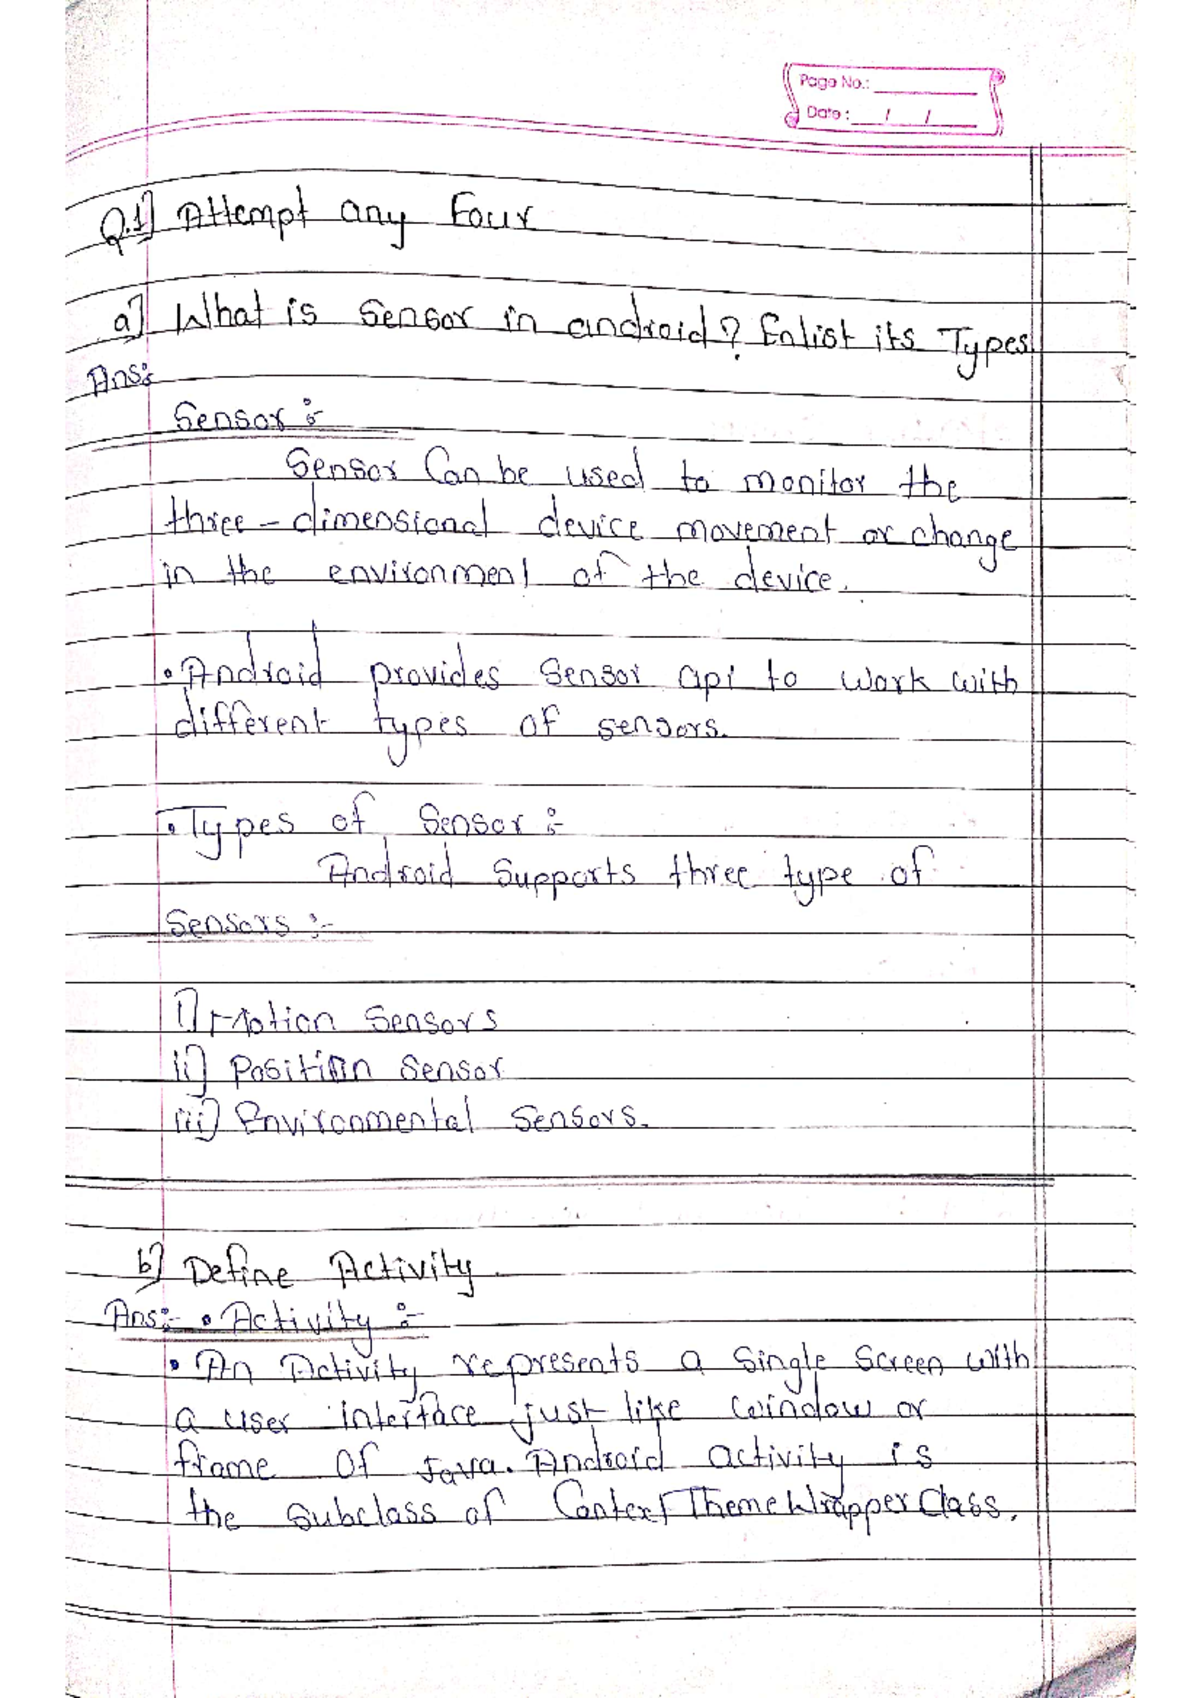 Page No.:
Date: / /
Q.1] Attempt any Four
a] What is Sensor in android? Enlist its Types
Ans:-
Sensor :-
Sensor Can be used to monitor the
three-dimensional device movement or change
in the environment of the device.
• Android provides Sensor api to work with
different types of sensors.
• Types of Sensor :-
Android Supports three type of
Sensors :-
i] Motion Sensors
ii] Position Sensor
iii] Environmental Sensors.
b] Define Activity.
Ans:- • Activity :-
• An Activity represents a Single Screen with
a user interface just like window or
frame of Java. Android activity is
the subclass of ContextThemeWrapper Class.